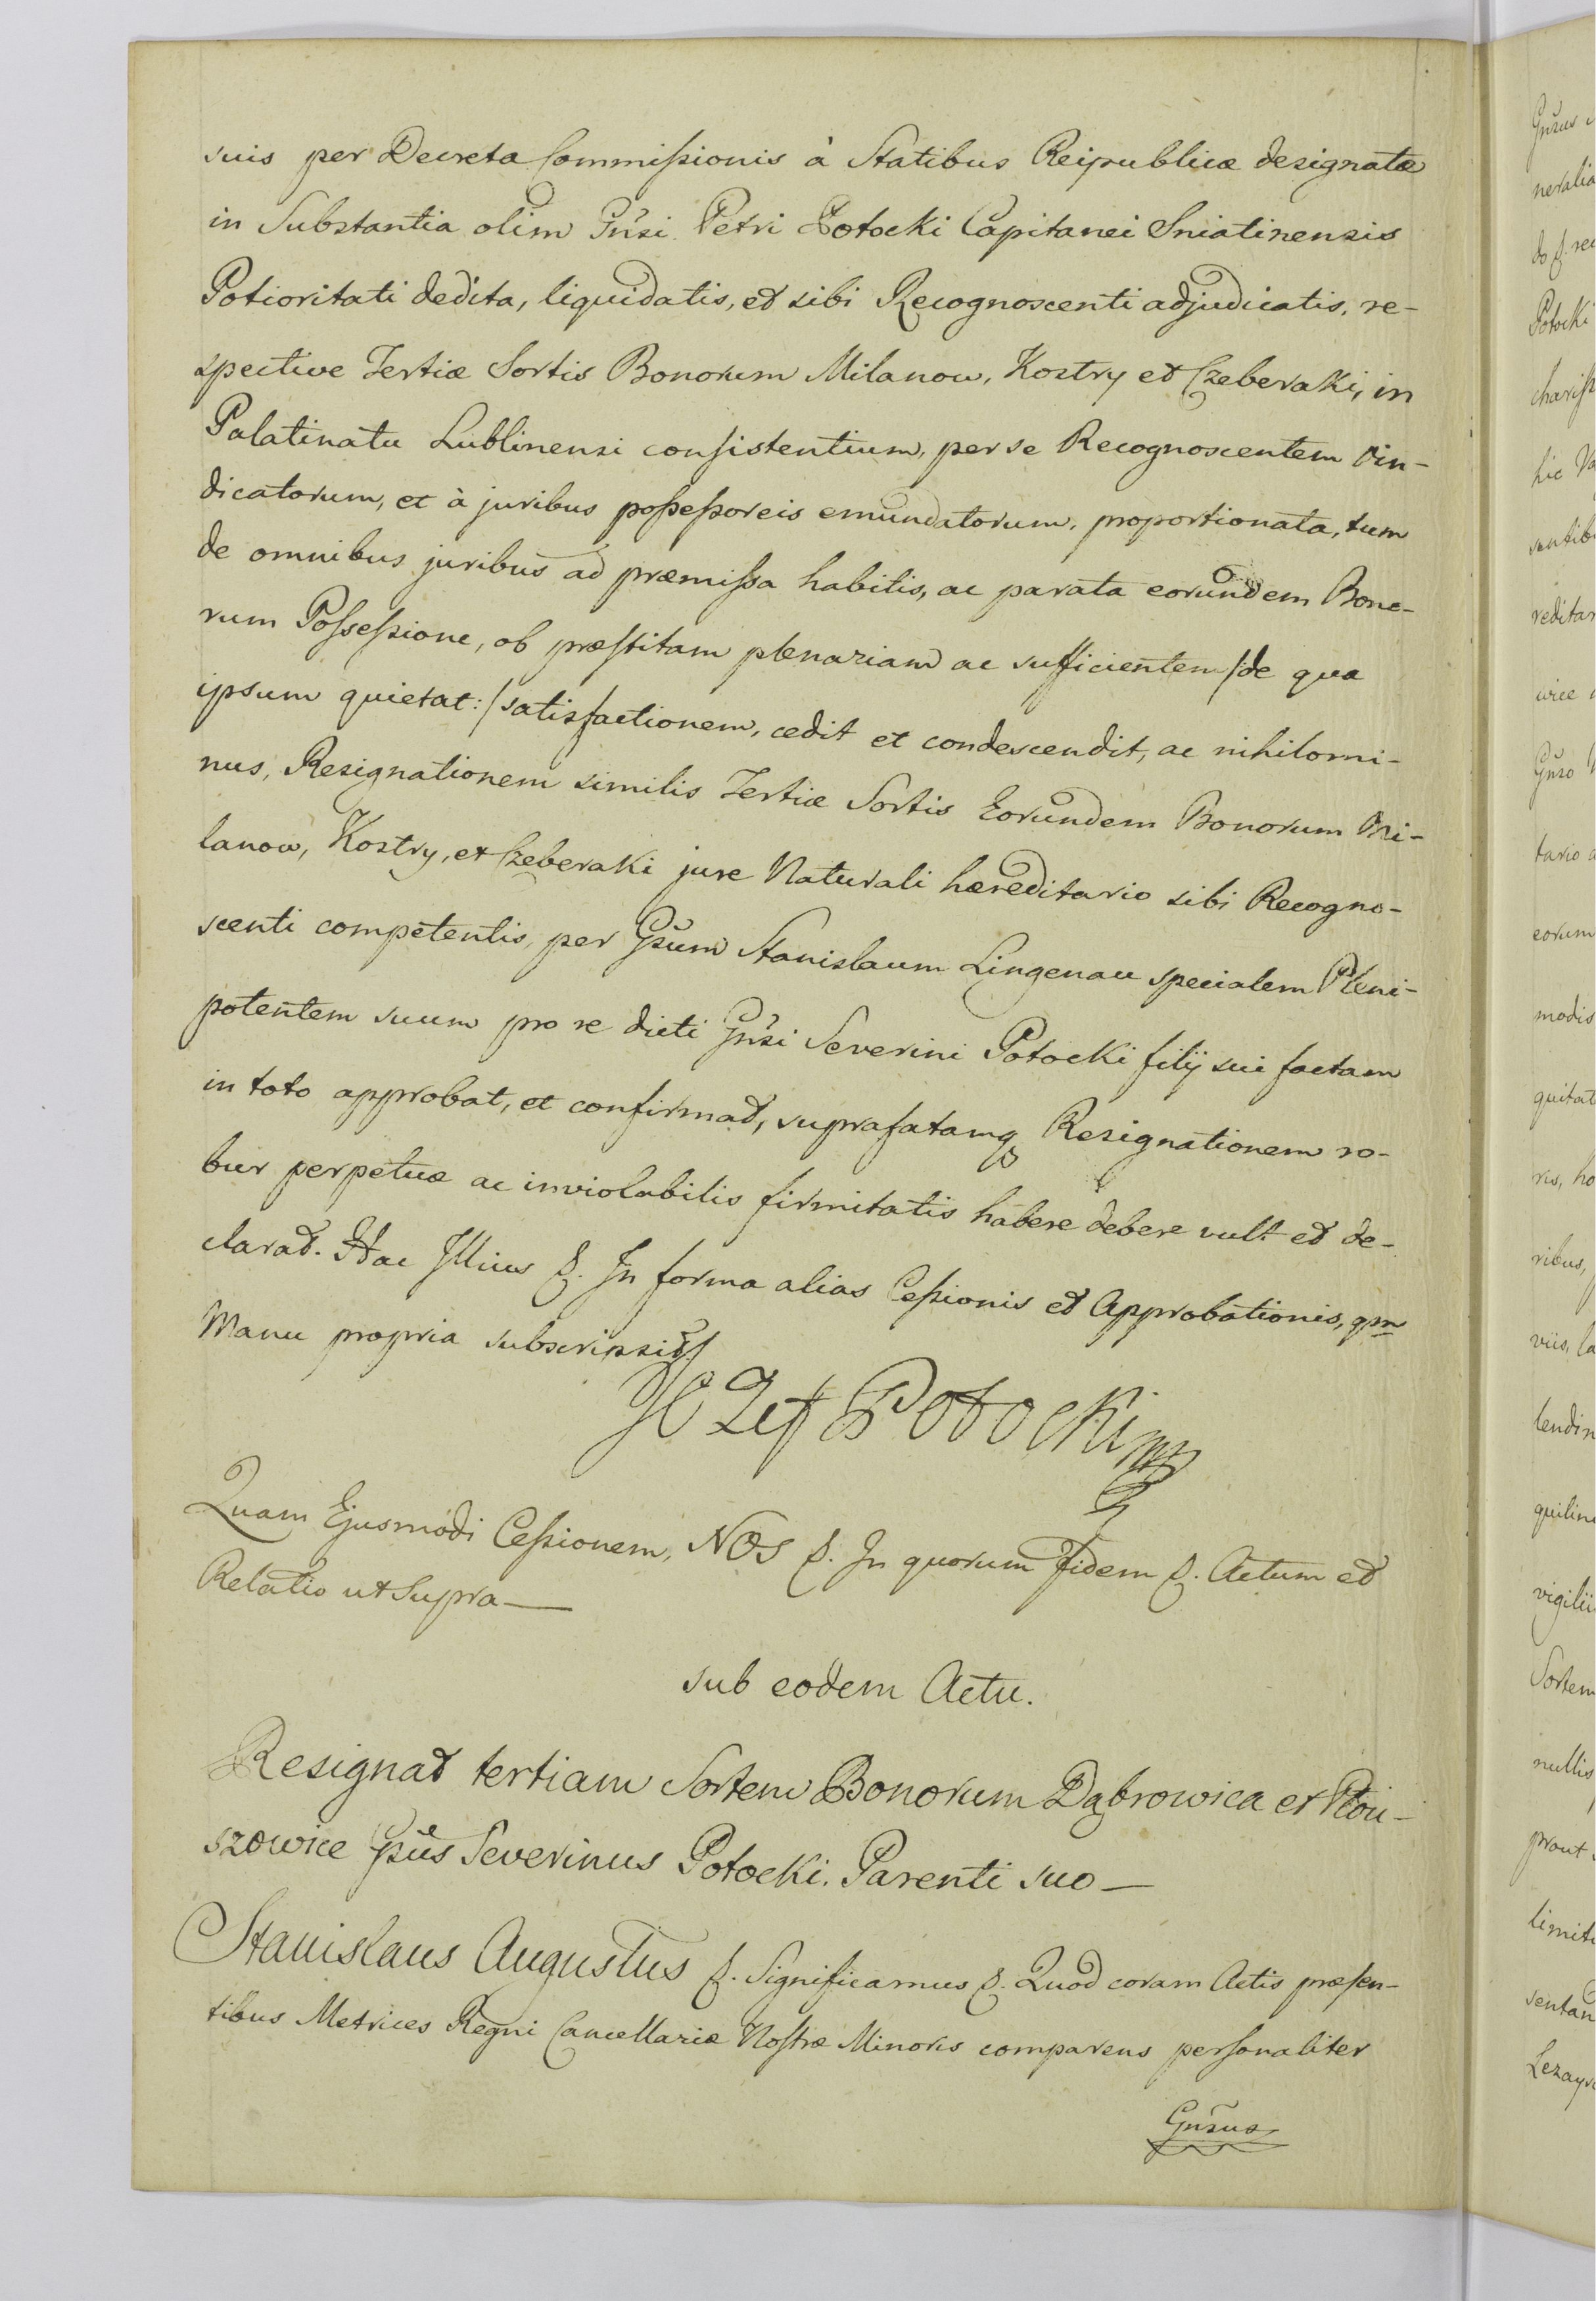 suis per Decreta Commissionis à Statibus Reipublicæ designatæ
in Substantia olim Gnŝi Petri Potocki Capitanei Sniatinensis
Potioritati dedita, liquidatis, et sibi Recognoscenti adjudicatis, re-
spective Tertiæ Sortis Bonorum Milanow, Kostry et Czeberaki, in
Palatinatu Lublinensi consistentium, per se Recognoscentem vin-
dicatorum, et à juribus possessoreis emundatorum, proportionata, tum
de omnibus juribus ad præmissa habitis, ac parata eorundem Bono-
rum Possessione, ob præstitam plenariam ac sufficientem /:de qua
ipsum quietat:/ satisfactionem, cedit et condescendit, ac nihilomi-
nus, Resignationem similis Tertiæ Sortis Eorundem Bonorum Mi-
lanow, Kostry, et Czeberaki jure Naturali hæreditario sibi Recogno-
scenti competentis, per Gsum Stanislaum Lingenau specialem Pleni-
potentem suum pro re dicti Gnŝi Severini Potocki filij sui factam
in toto approbat, et confirmat, suprafatamq Resignationem ro-
bur perpetuæ ac inviolabilis firmitatis habere debere vult et de-
clarat. Hac Illius &. In forma alias Cessionis et Approbationis, qm
Manu propria subscripsit./
JOZef Potocki mp
Quam Ejusmodi Cessionem, NOS &. In quorum fidem &. Actum et
Relatio ut Supra —
sub eodem Actu.
Resignat tertiam Sortem Bonorum Dąbrowica et Płou-
szowice Gsus Severinus Potocki. Parenti suo —
Stanislaus Augustus &. Significamus &. Quod coram Actis præsen-
tibus Metrices Regni Cancellariæ Nostræ Minoris comparens personaliter
Gnŝus